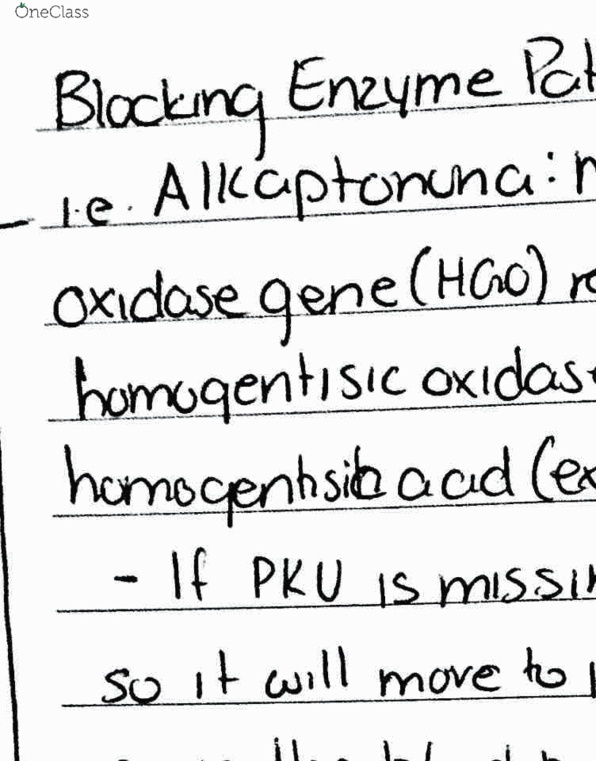 OneClass
Blocking Enzyme Pat
i.e. Alkaptonuria:
oxidase gene (HGO) re
homogentisic oxidas
homogentisic acid (ex
- If PKU is missin
so it will move to